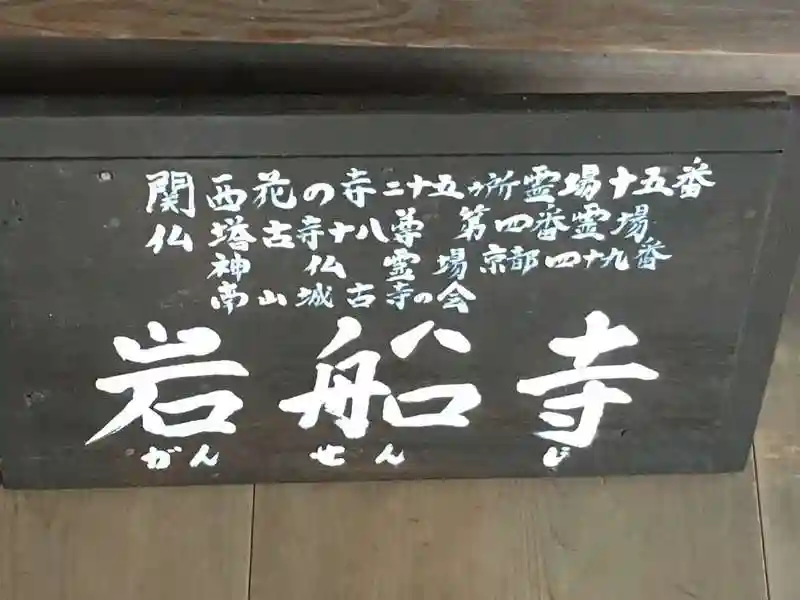 関西花の寺二十五カ所霊場十五番
仏塔古寺十八尊 第四番霊場
神仏霊場京都四十九番
南山城古寺の会
岩船寺
がんせんじ